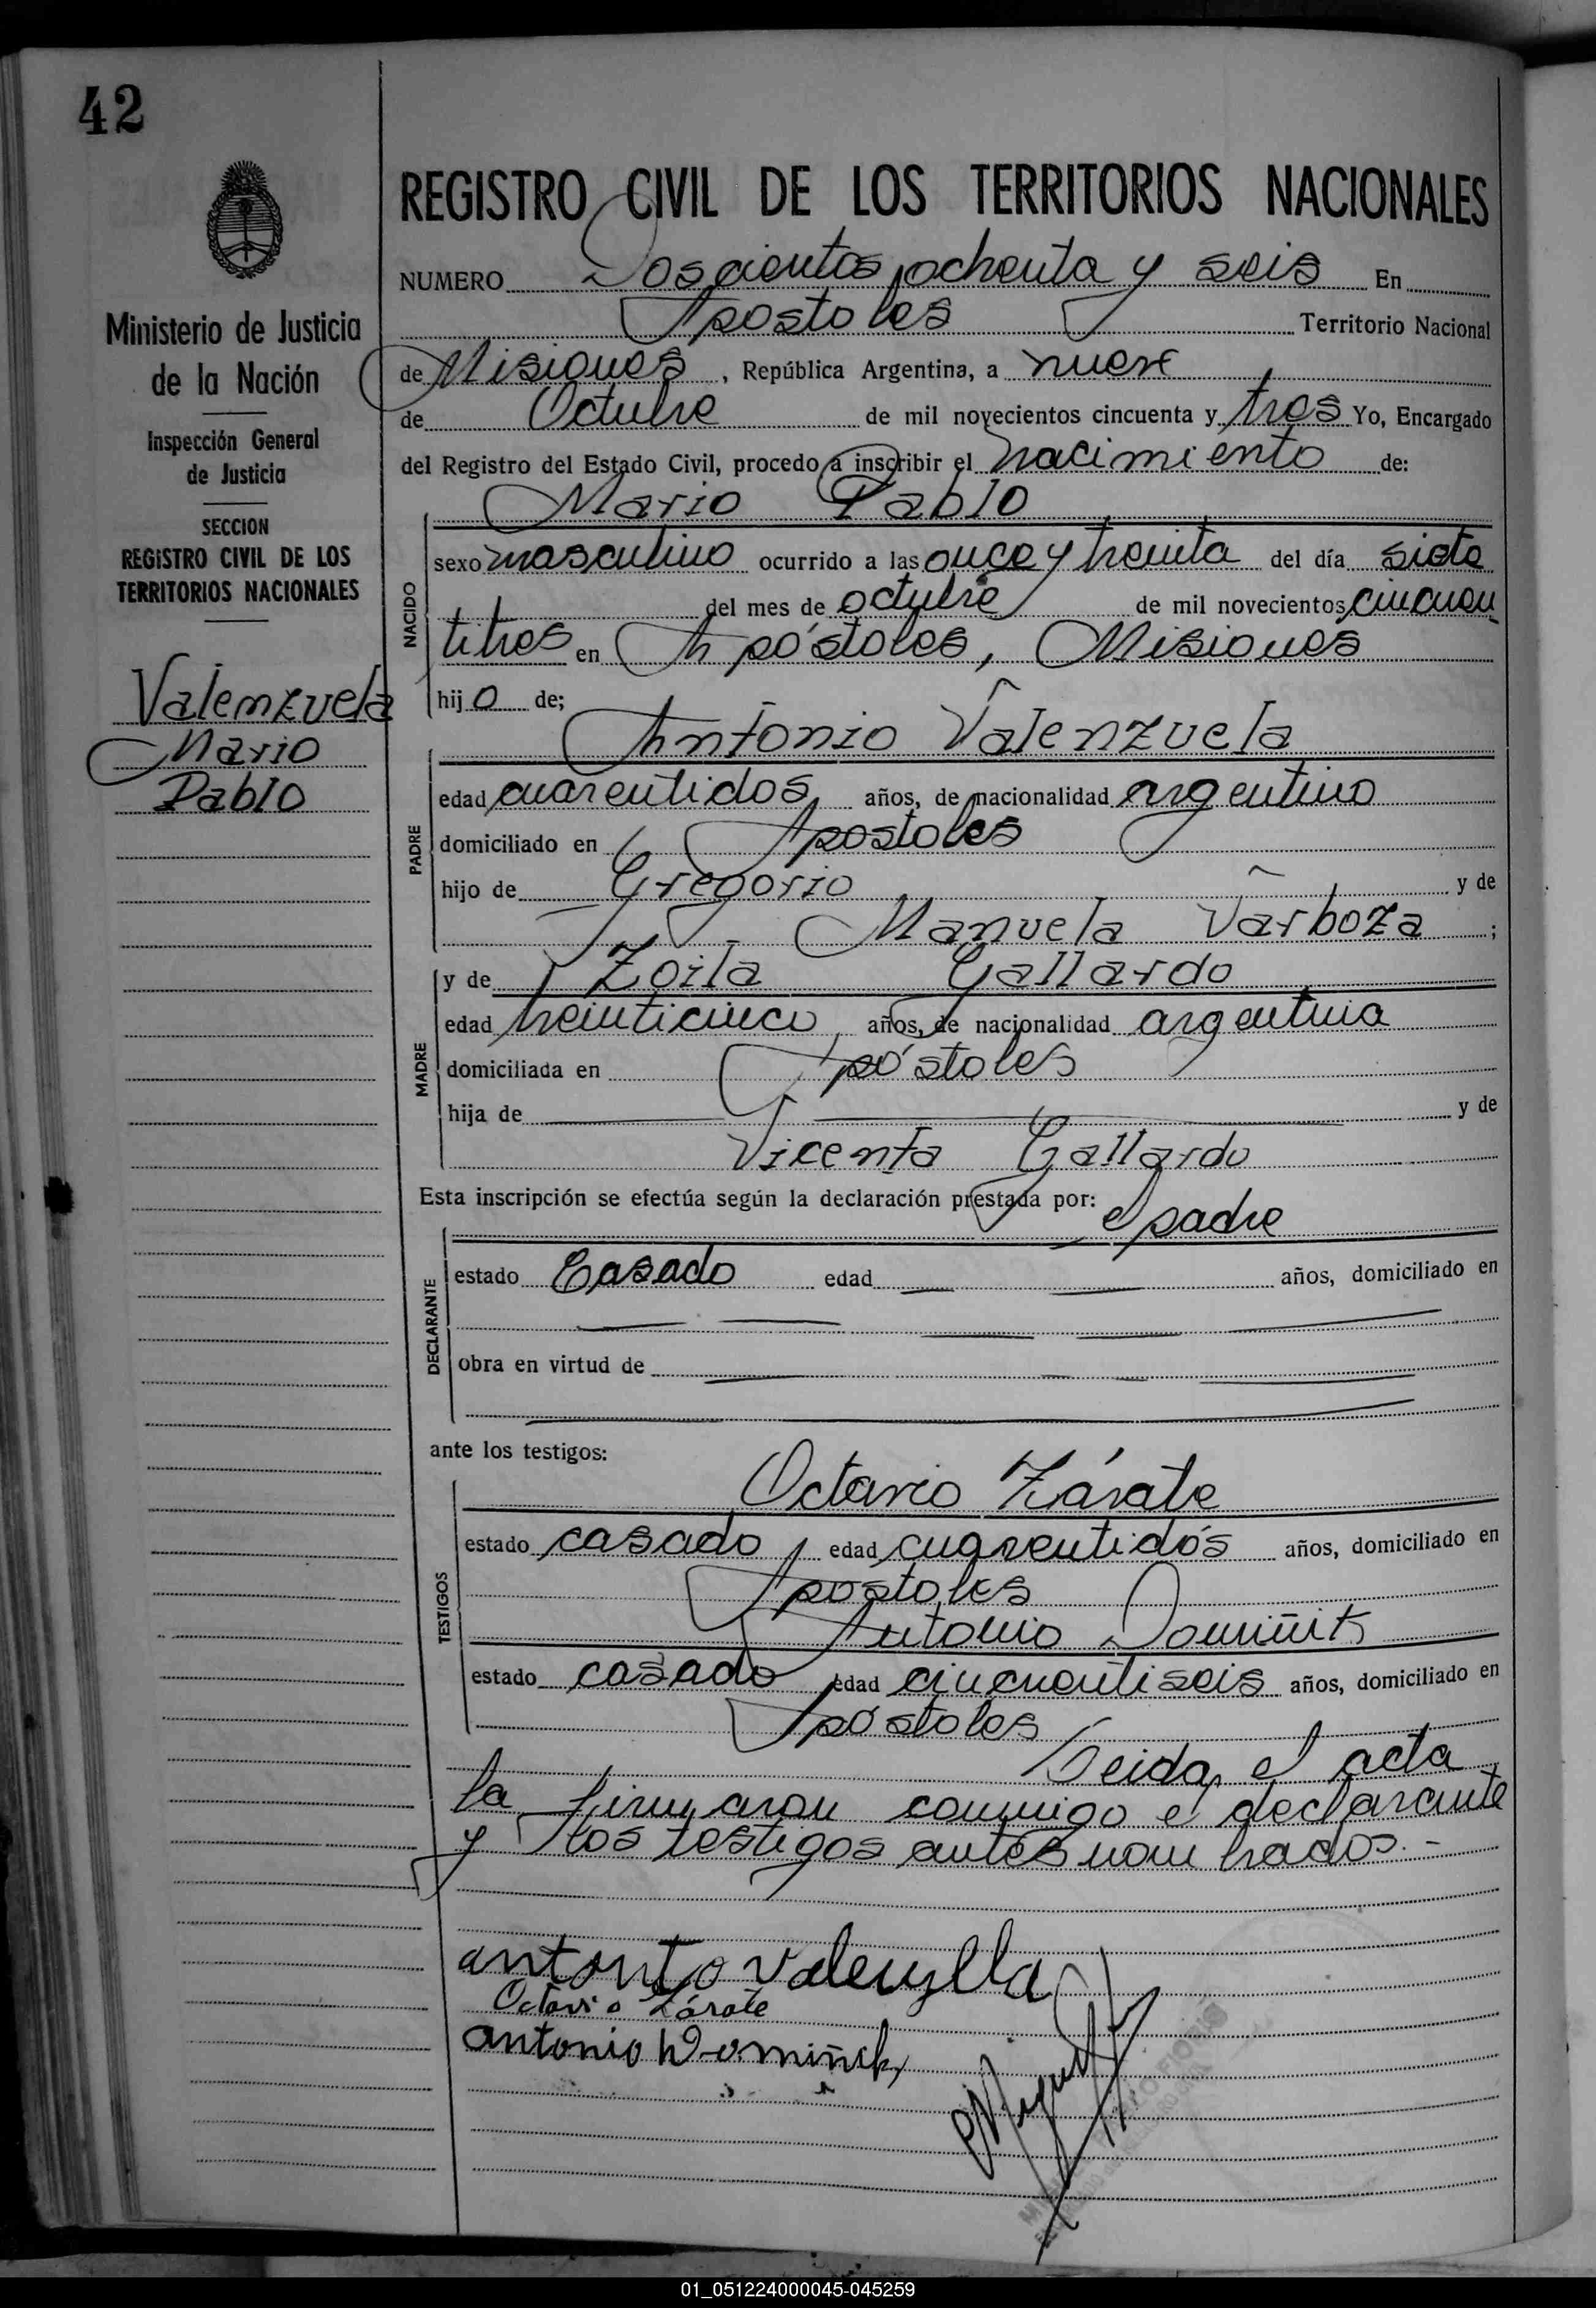 42
REGISTRO CIVIL DE LOS TERRITORIOS NACIONALES
NUMERO Doscientos ochenta y seis En
Apostoles Territorio Nacional
de Misiones, República Argentina, a nueve
de Octubre de mil novecientos cincuenta y tres Yo, Encargado
del Registro del Estado Civil, procedo a inscribir el nacimiento de:
Mario Pablo
NACIDO
sexo masculino ocurrido a las once y treinta del día siete
del mes de octubre de mil novecientos cincuen
titres en Apóstoles, Misiones
hijo de;
Antonio Valenzuela
PADRE
edad cuarentidos años, de nacionalidad argentino
domiciliado en Apostoles
hijo de Gregorio y de
Manuela Varboza ;
MADRE
y de Zoila Gallardo
edad veinticinco años, de nacionalidad argentina
domiciliada en Apóstoles
hija de y de
Vicenta Gallardo
Esta inscripción se efectúa según la declaración prestada por: el padre
DECLARANTE
estado Casado edad años, domiciliado en
obra en virtud de
ante los testigos:
TESTIGOS
Octavio Zárate
estado casado edad cuarentidós años, domiciliado en
Apostoles
Antonio Domiñik
estado casado edad cincuentiseis años, domiciliado en
Apóstoles
Leida el acta
la firmaron conmigo el declarante
y los testigos antes nombrados.-
antonio valenzella
Octavio Zárate
antonio Domiñck
Ministerio de Justicia
de la Nación
Inspección General
de Justicia
SECCION
REGISTRO CIVIL DE LOS
TERRITORIOS NACIONALES
Valenzuela
Mario
Pablo
01_051224000045-045259